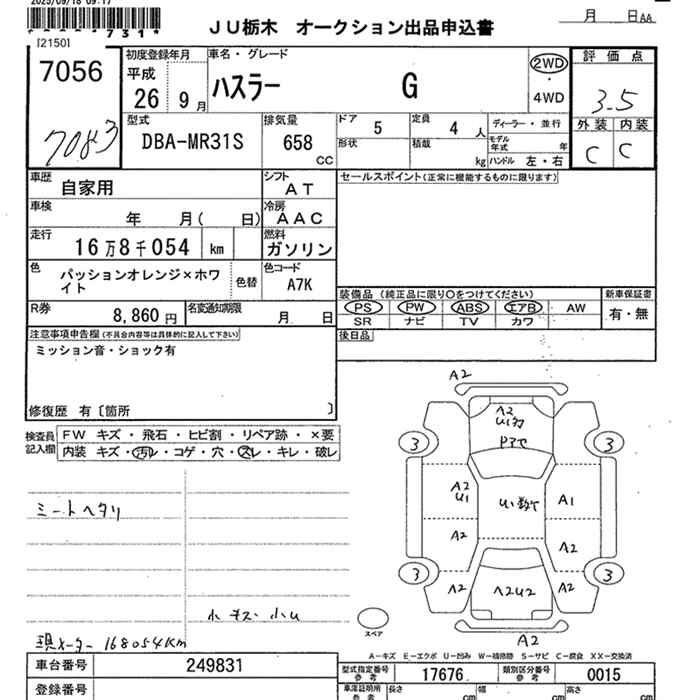 2025/09/18 09:17
7 3 1
[2150]
JU栃木 オークション出品申込書
月 日AA
7056
7083
初度登録年月
平成
26 9月
車名・グレード
ハスラー G
2WD
・
4WD
評価点
3.5
外装 内装
C C
型式
DBA-MR31S
排気量
658
CC
ドア
5
定員
4 人
ディーラー・並行
形状
積載
kg
モデル年式 年
ハンドル 左・右
車歴
自家用
シフト
AT
セールスポイント(正常に機能するものに限ります)
車検
年 月( 日)
冷房
AAC
走行
16万8千054 km
燃料
ガソリン
色
パッションオレンジ×ホワイト
色替
色コード
A7K
R券
8,860 円
名変通知期限
月 日
装備品 (純正品に限り○をつけてください)
PS PW ABS エアB AW
SR ナビ TV カワ
新車保証書
有・無
後日品
注意事項申告欄(不具合内容等は具体的に記入して下さい)
ミッション音・ショック有
修復歴 有〔箇所 〕
検査員記入欄
FW キズ・飛石・ヒビ割・リペア跡・×要
内装 キズ・汚れ・コゲ・穴・スレ・キレ・破レ
シートヘタリ
小キズ 小U
現メーター 168054Km
A2
A2
3 3
A2
U1
U1数ケ
A1
A2 A2
3 3
A2 A2U2 A2
A2
スペア
A－キズ E－エクボ U－凹み W－補修跡 S－サビ C－腐食 XX－交換済
車台番号 249831
登録番号
型式指定番号
参考
17676
類別区分番号
参考
0015
車庫証明用
参考
長さ cm
幅 cm
高さ cm